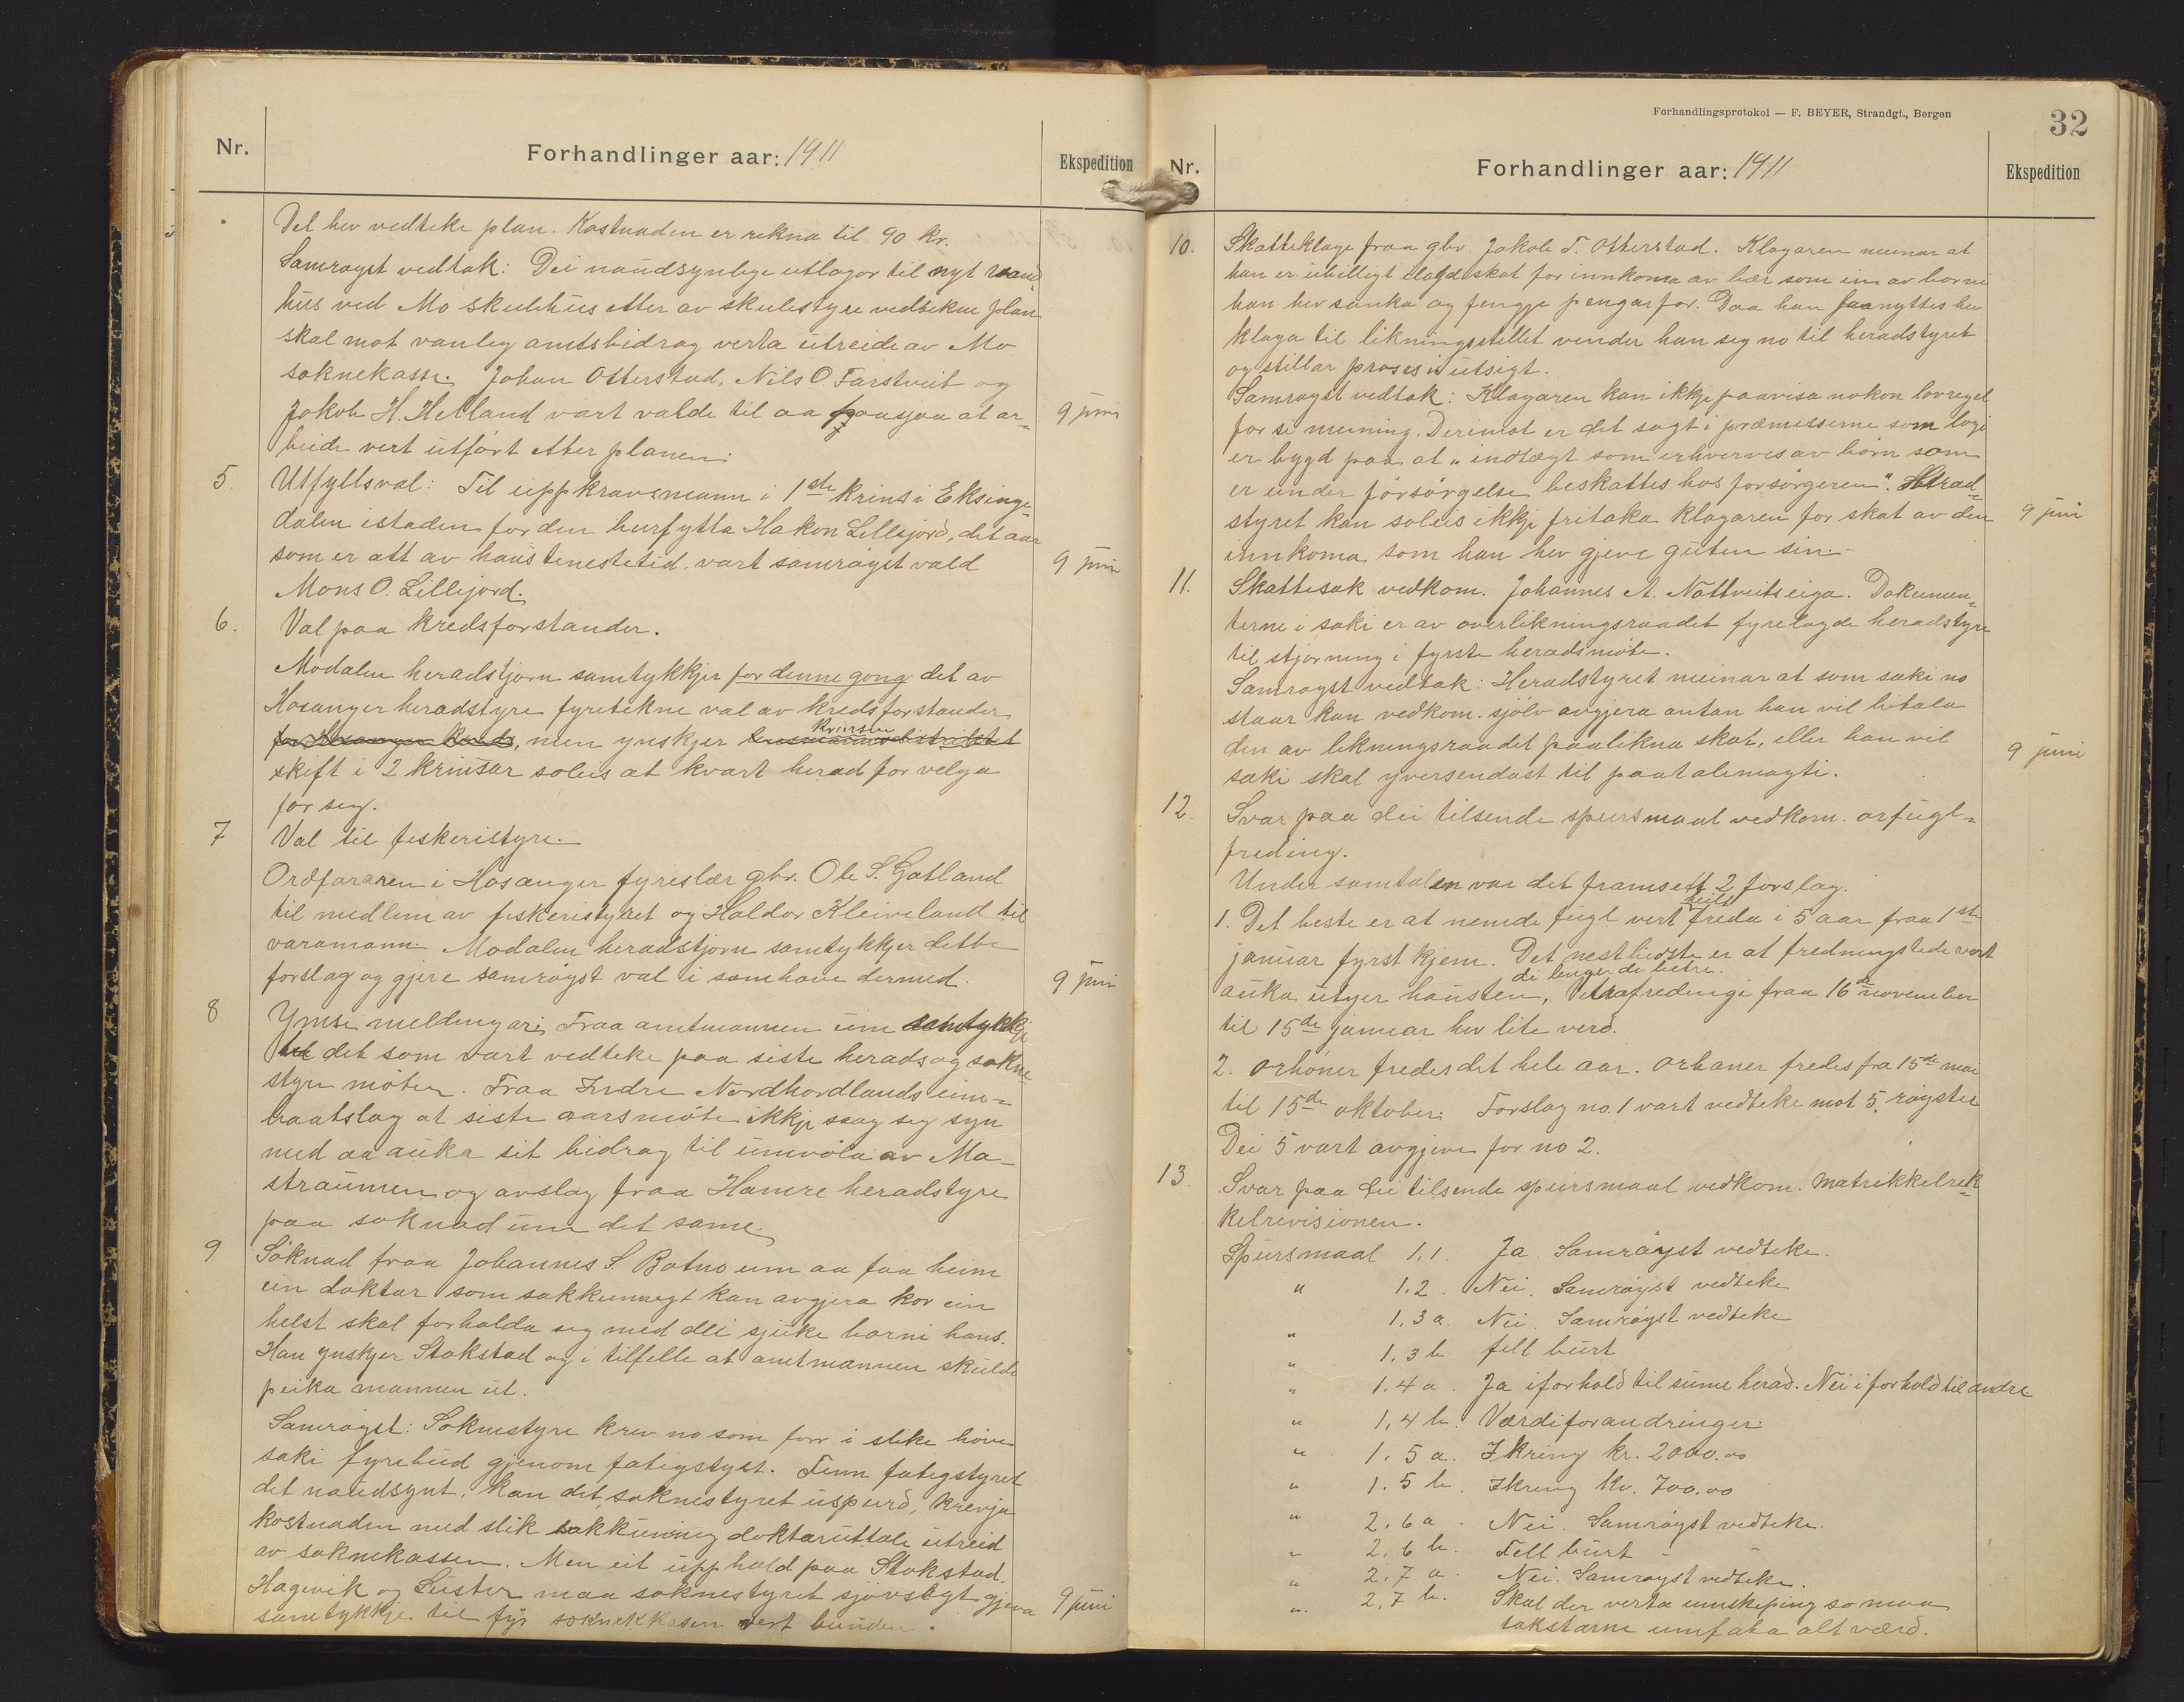 Nr.
Forhandlinger aar: 1911
Ekspedition
Det hev vedteke plan. Kostnaden er rekna til 90 kr.
Samrøyst vedtak: Dei naudsynlege utlagor til nyt vand
hus ved Mo skulehus etter av skulestyre vedtekne plan
skal mot vanleg amtsbidrag verta utreide av Mo
soknekasse. Johan Otterstad, Nils O Farstveit og
Jakob H. Helland vart valde til aa paasjaa at ar-
9 juni
beide vert utført etter planen.
5.
Utfyllsval: Til uppkravsmann i 1ste krins i Eksinge-
dalen istaden for den burfytta Hakon Lillejord, det aar
som er att av hans tenestetid, vart samrøyst vald
9 juni
Mons O. Lillejord.
6.
Val paa kredsforstander.
Modalen heradstjorn samtykkjer for denne gong det av
Hosanger heradstyre fyretekne val av kredsforstander
for Hosanger kreds, men ynskjer lensmannsdistriktet krinsen
skift i 2 krinsar soleis at kvart herad for velga
for seg.
7
Val til fiskeristyre.
Ordføraren i Hosanger fyreslær gbr. Ole S. Gatland
til medlem av fiskeristyret og Haldor Kleiveland til
varamann. Modalen heradstjorn samtykkjer dette
forslag og gjere samrøyst val i samhøve dermed.
9 juni
8
Ymse meldingar: Fraa amtmannen um samtykkje
til det som vart vedteke paa siste herads og sokne
styre møter. Fraa Indre Nordhordlands
baatslag at siste aarsmøte ikkje saag seg syn
med aa auka sit bidrag til umvøla av Mo-
straumen og avslag fraa Hamre heradstyre
paa soknad um det same.
9
Søknad fraa Johannes S. Botno um aa faa heim
ein doktar som sakkunnegt kan avgjera kor ein
helst skal forhalda seg med dei sjuke borni hans.
Han ynskjer Stokstad og i tilfelle at amtmannen skulde
peika mannen ut.
Samrøyst: Soknestyre krev no som forr i slike høve
saki fyrebud gjenom fatigstyret. Finn fatigstyret
det naudsynt, kan det, soknestyret uspurd, krevja
kostnaden med slik sakkunnig doktaruttale utreid
av soknekassen. Men eit upphald paa Stokstad,
Hagevik og Luster maa soknestyret sjøvsagt gjeva
9 juni
samtykkje til fyr soknekkasen vert bunden.
Forhandlingsprotokol — F. BEYER, Strandgt., Bergen
32
Nr.
Forhandlinger aar: 1911
Ekspedition
10.
Skatteklage fraa gbr. Jakob T. Otterstad. Klagaren meinar at
han er ubilligt ilagd skat for innkoma av bær som ein av borne
han hev sanka og fengje pengar for. Daa han faanyttes hev
klaga til likningsstellet vender han seg no til heradstyret
og stillar proses i utsigt.
Samrøyst vedtak: Klagaren kan ikkje paavisa nokon lovregel
for si meining. Derimot er det sagt i præmisserne som lovi
er bygd paa at „indtægt som erhverves av børn som
er under forsørgelse beskattes hos forsørgeren". Herad-
styret kan soleis ikkje fritaka klagaren for skat av den
9 juni
innkoma som han hev gjeve guten sin.-
11.
Skattesak vedkom. Johannes A. Nøttveits eiga. Dokumen-
terne i saki er av overlikningsraadet fyrelagde heradstyre
til stjorning i fyrste heradsmøte.
Samrøyst vedtak: Heradstyret meinar at som saki no
staar kan vedkom. sjølv avgjera antan han vil betala
den av likningsraadet paalikna skat, eller han vil
9 juni
saki skal yversendast til paatalemagti.
12.
Svar paa dei tilsende spursmaal vedkom. orfugl-
freding.
Under samtalen var det framsett 2 forslag.
1. Det beste er at nemde fugl vert heilt freda i 5 aar fraa 1ste
januar fyrst kjem. Det nestbedste er at fredningstide vert
auka utyer hausten, di lenger di betre. Vetrafredingi fraa 16de november
til 15de januar hev lite verd.
2. orhøner fredes det hele aar. orhaner fredes fra 15de mai
til 15de oktober. Forslag no. 1 vart vedteke mot 5 røyster
Dei 5 vart avgjeve for no 2.
13.
Svar paa dei tilsende spursmaal vedkom. matrikkelrek-
kelrevisionen.
Spursmaal 1.1. Ja. Samrøyst vedteke.
" 1.2. Nei. Samrøyst vedteke
" 1.3 a. Nei. Samrøyst vedteke
" 1.3 b fell burt
" 1.4 a. Ja i forhold til sume herad. Nei i forhold til andre
" 1.4 b. Værdiforandringer.
" 1.5 a. Ikring kr. 2000.00
" 1.5 b. Ikring kr. 700.00
" 2.6 a. Nei. Samrøyst vedteke.
" 2.6 b. Fell burt
" 2.7 a. Nei. Samrøyst vedteke.
" 2.7 b. Skal der verta umskeping so maa
takstarne umfata alt værd.